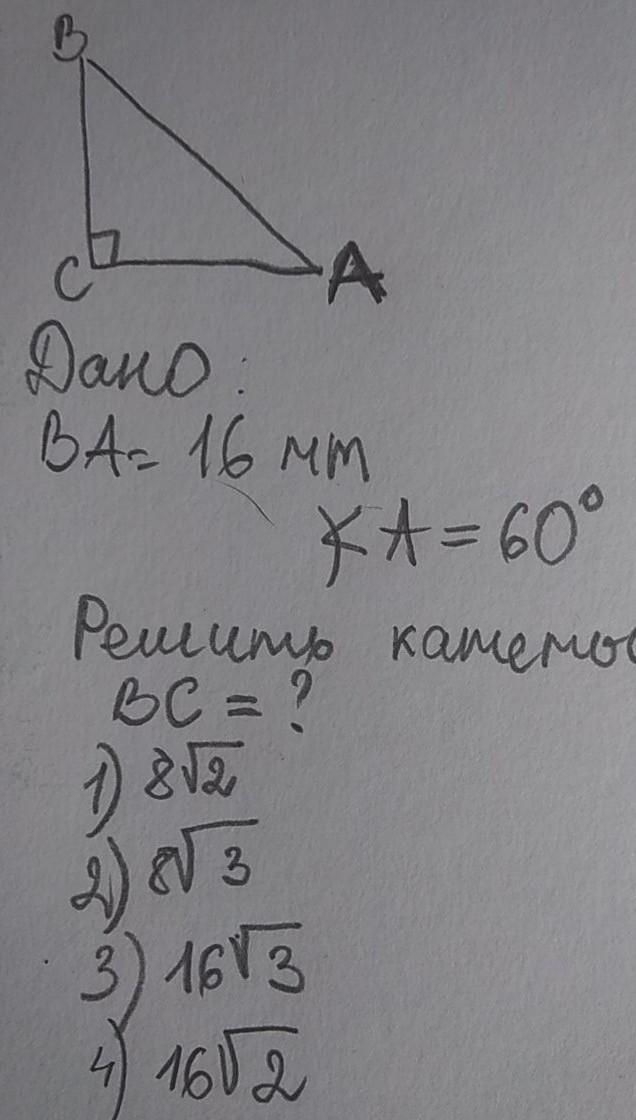 B
C
A
Дано:
BA= 16 мм
∠A = 60°
Решить катеты
BC = ?
1) 8√2
2) 8√3
3) 16√3
4) 16√2